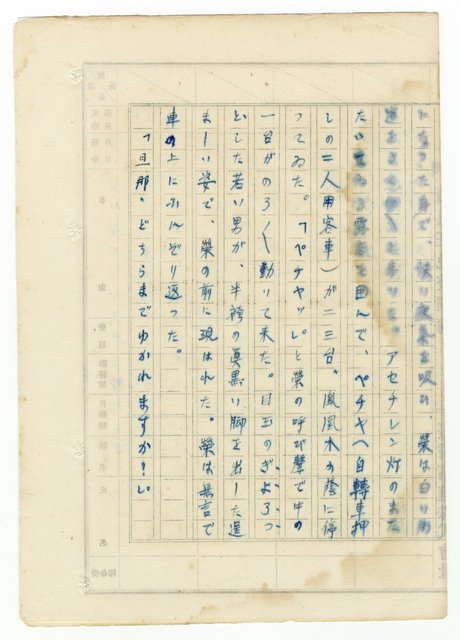 になつた身で、快い夜気を吸ひ、榮は白い街
道を と歩いた。アセチレン灯のまた
たいてゐる露店を囲んで、ペチヤ(自轉車押
しの二人用客車)が二三台、鳳凰木の蔭に停
つてゐた。「ペチヤッ」と榮の呼び聲で中の
一台がのろ〱動いて来た。目玉のぎよろつ
とした若い男が、半袴の真黒い脚を出した逞
ましい姿で、榮の前に現はれた。榮は無言で
車の上にふんぞり返つた。
「旦那、どちらまでゆかれますか?」